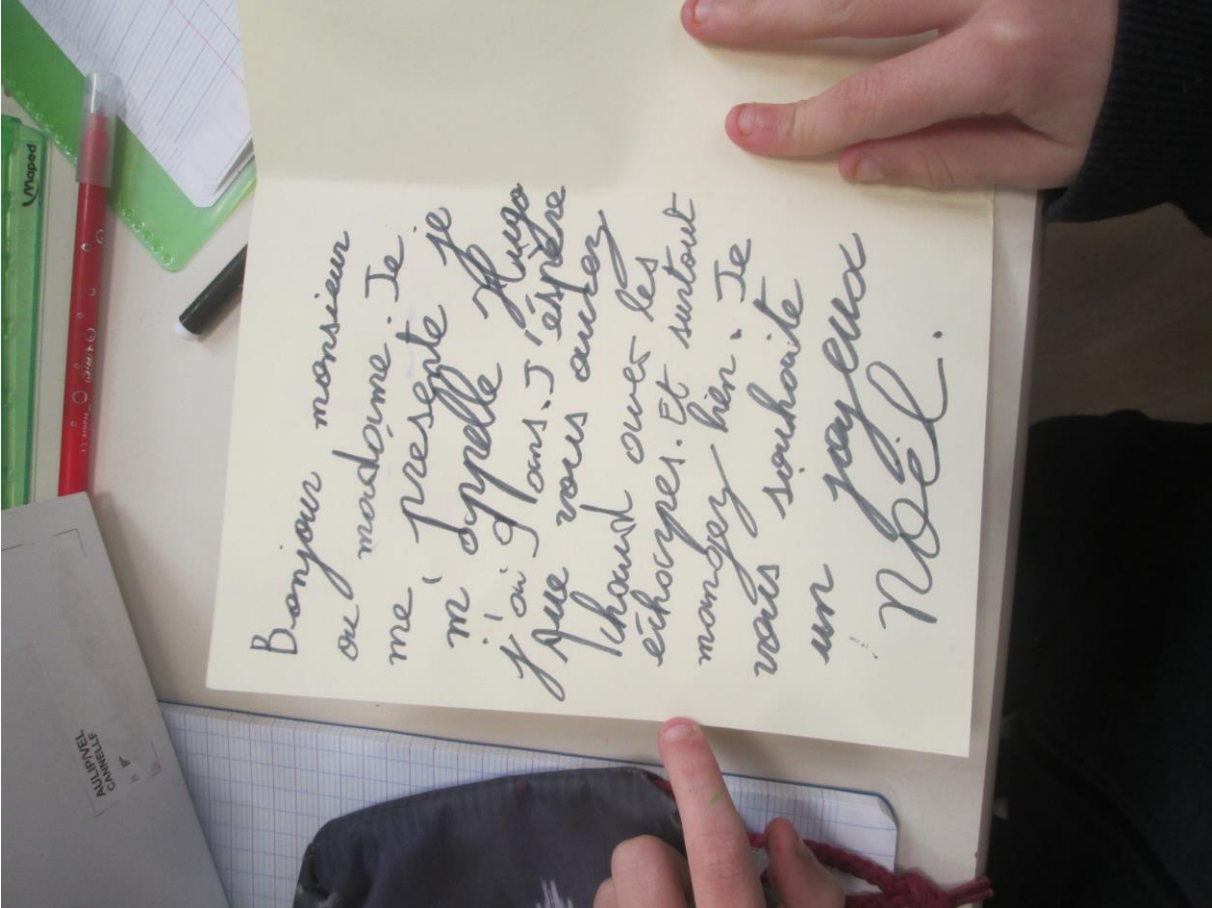 Bonjour monsieur
ou madame. Je
me présente je
m'appelle Hugo
j'ai 9 ans. J'éspère
que vous aurez
chaud avec les
écharpes. Et surtout
mangez bien. Je
vous souhaite
un joyeux
Noël.
Maped
AULIP/VEL
CANNELLE